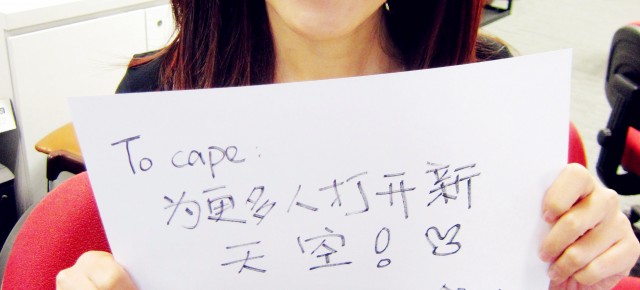 To cape:
为更多人打开新
天空!